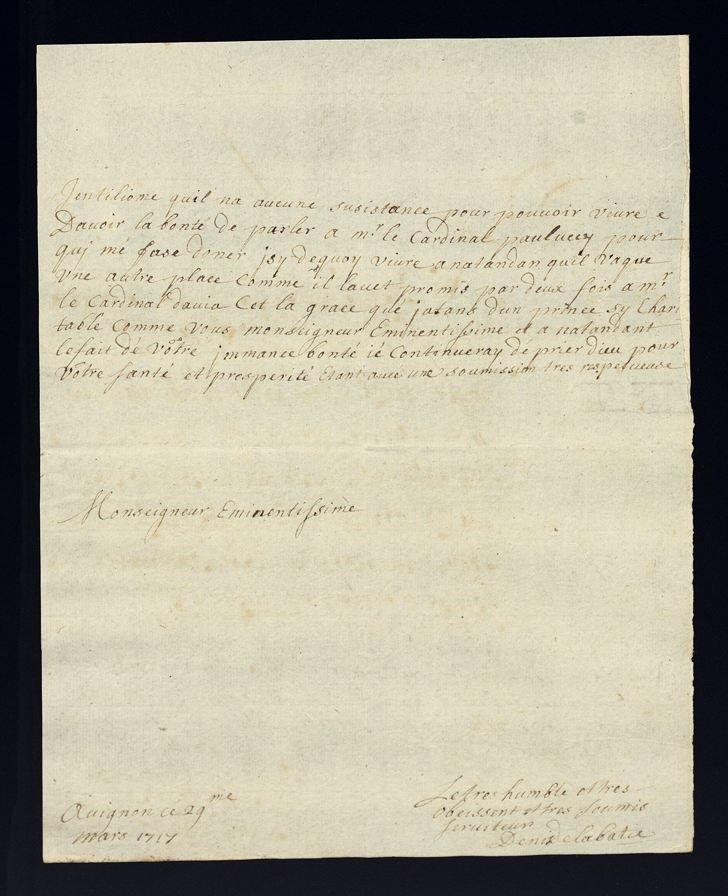 Jentiliome quil na aucune susistance pour pouvoir vivre e
Davoir la bonté de parler a mr le Cardinal paulucey pour
qui mé fase doner jsy dequoy vivre a natandan quil vaque
vne autre place Comme il lavet promis par deux fois a mr
le Cardinal davia Cet la grace que jatans dun prince sy Chari
table Comme vous monseigneur Eminentissime et a natandant
lefait dé vôtre jmmance bonté ie Continueray dé prier dieu pour
vôtre santé et prosperité Etant avec une soumission tres respetueuse
Monseigneur Eminentissime
Avignon ce 29me
mars 1717
Le tres humble et tres
obeissent et tres soumis
serviteur
Denis delabatie